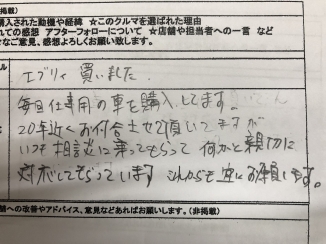 掲載)
購入された動機や経緯 ☆このクルマを選ばれた理由
れての感想 アフターフォローについて ☆店舗や担当者への一言 など
なご意見、感想よろしくお願い致します。
ル
エブリィ 買いました。
毎回仕事用の車を購入してます。
20年近くお付合させて頂いてますが
いつも相談に乗ってもらって 何かと親切に
対応してもらっています これからも宜しくお願いします。
舗への改善やアドバイス、意見などあればお願いします。(非掲載)